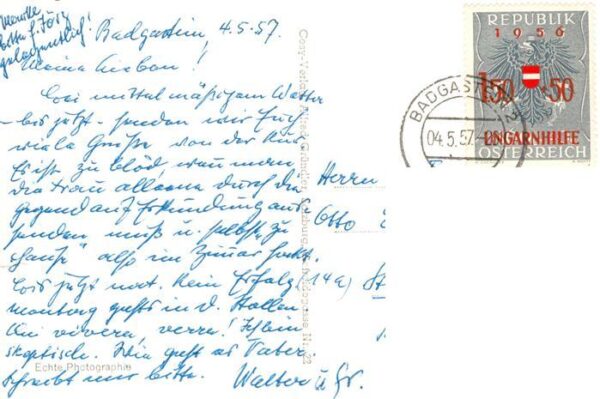 Marke
bitte f. Jörg
gelegentlich!
Badgastein 4.5.57.
Meine Lieben!
Bei mittelmäßigem Wetter
– bis jetzt – senden wir Euch
viele Grüße von der Kur
Es ist zu blöd, wenn man
die Frau alleine durch die
Gegend auf Erkundung aus-
senden muß u. selbst „zu
Hause" also im Zimmer hockt.
Bis jetzt noch kein Erfolg.
Montag gehts in d. Stollen
Chi vivera, verra! Ich bin
skeptisch. Wie geht es Vater
schreibt nur bitte. Walter u
Herrn
Otto
(14a) St
Echte Photographie
REPUBLIK
1956
1.50 + 50
UNGARNHILFE
ÖSTERREICH
BADGASTEIN
04.5.57